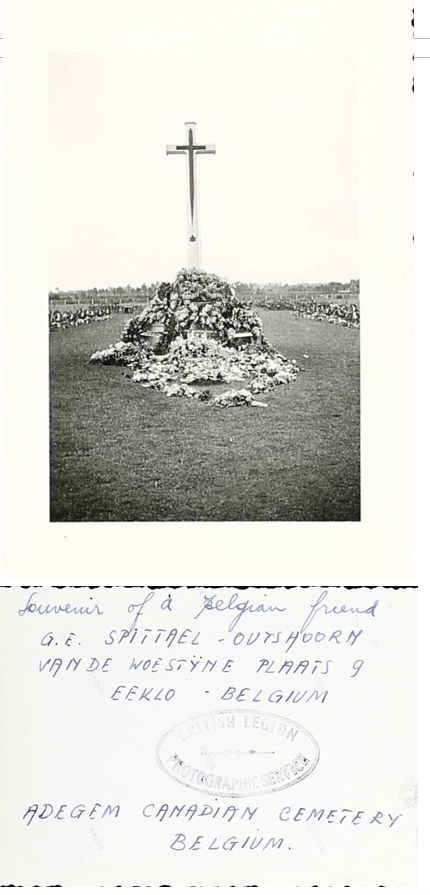 Souvenir of a Belgian friend
G.E. SPITTAEL - OUTSHOORN
VAN DE WOESTŸNE PLAATS 9
EEKLO - BELGIUM
BRITISH LEGION
PHOTOGRAPHIC SERVICE
ADEGEM CANADIAN CEMETERY
BELGIUM.